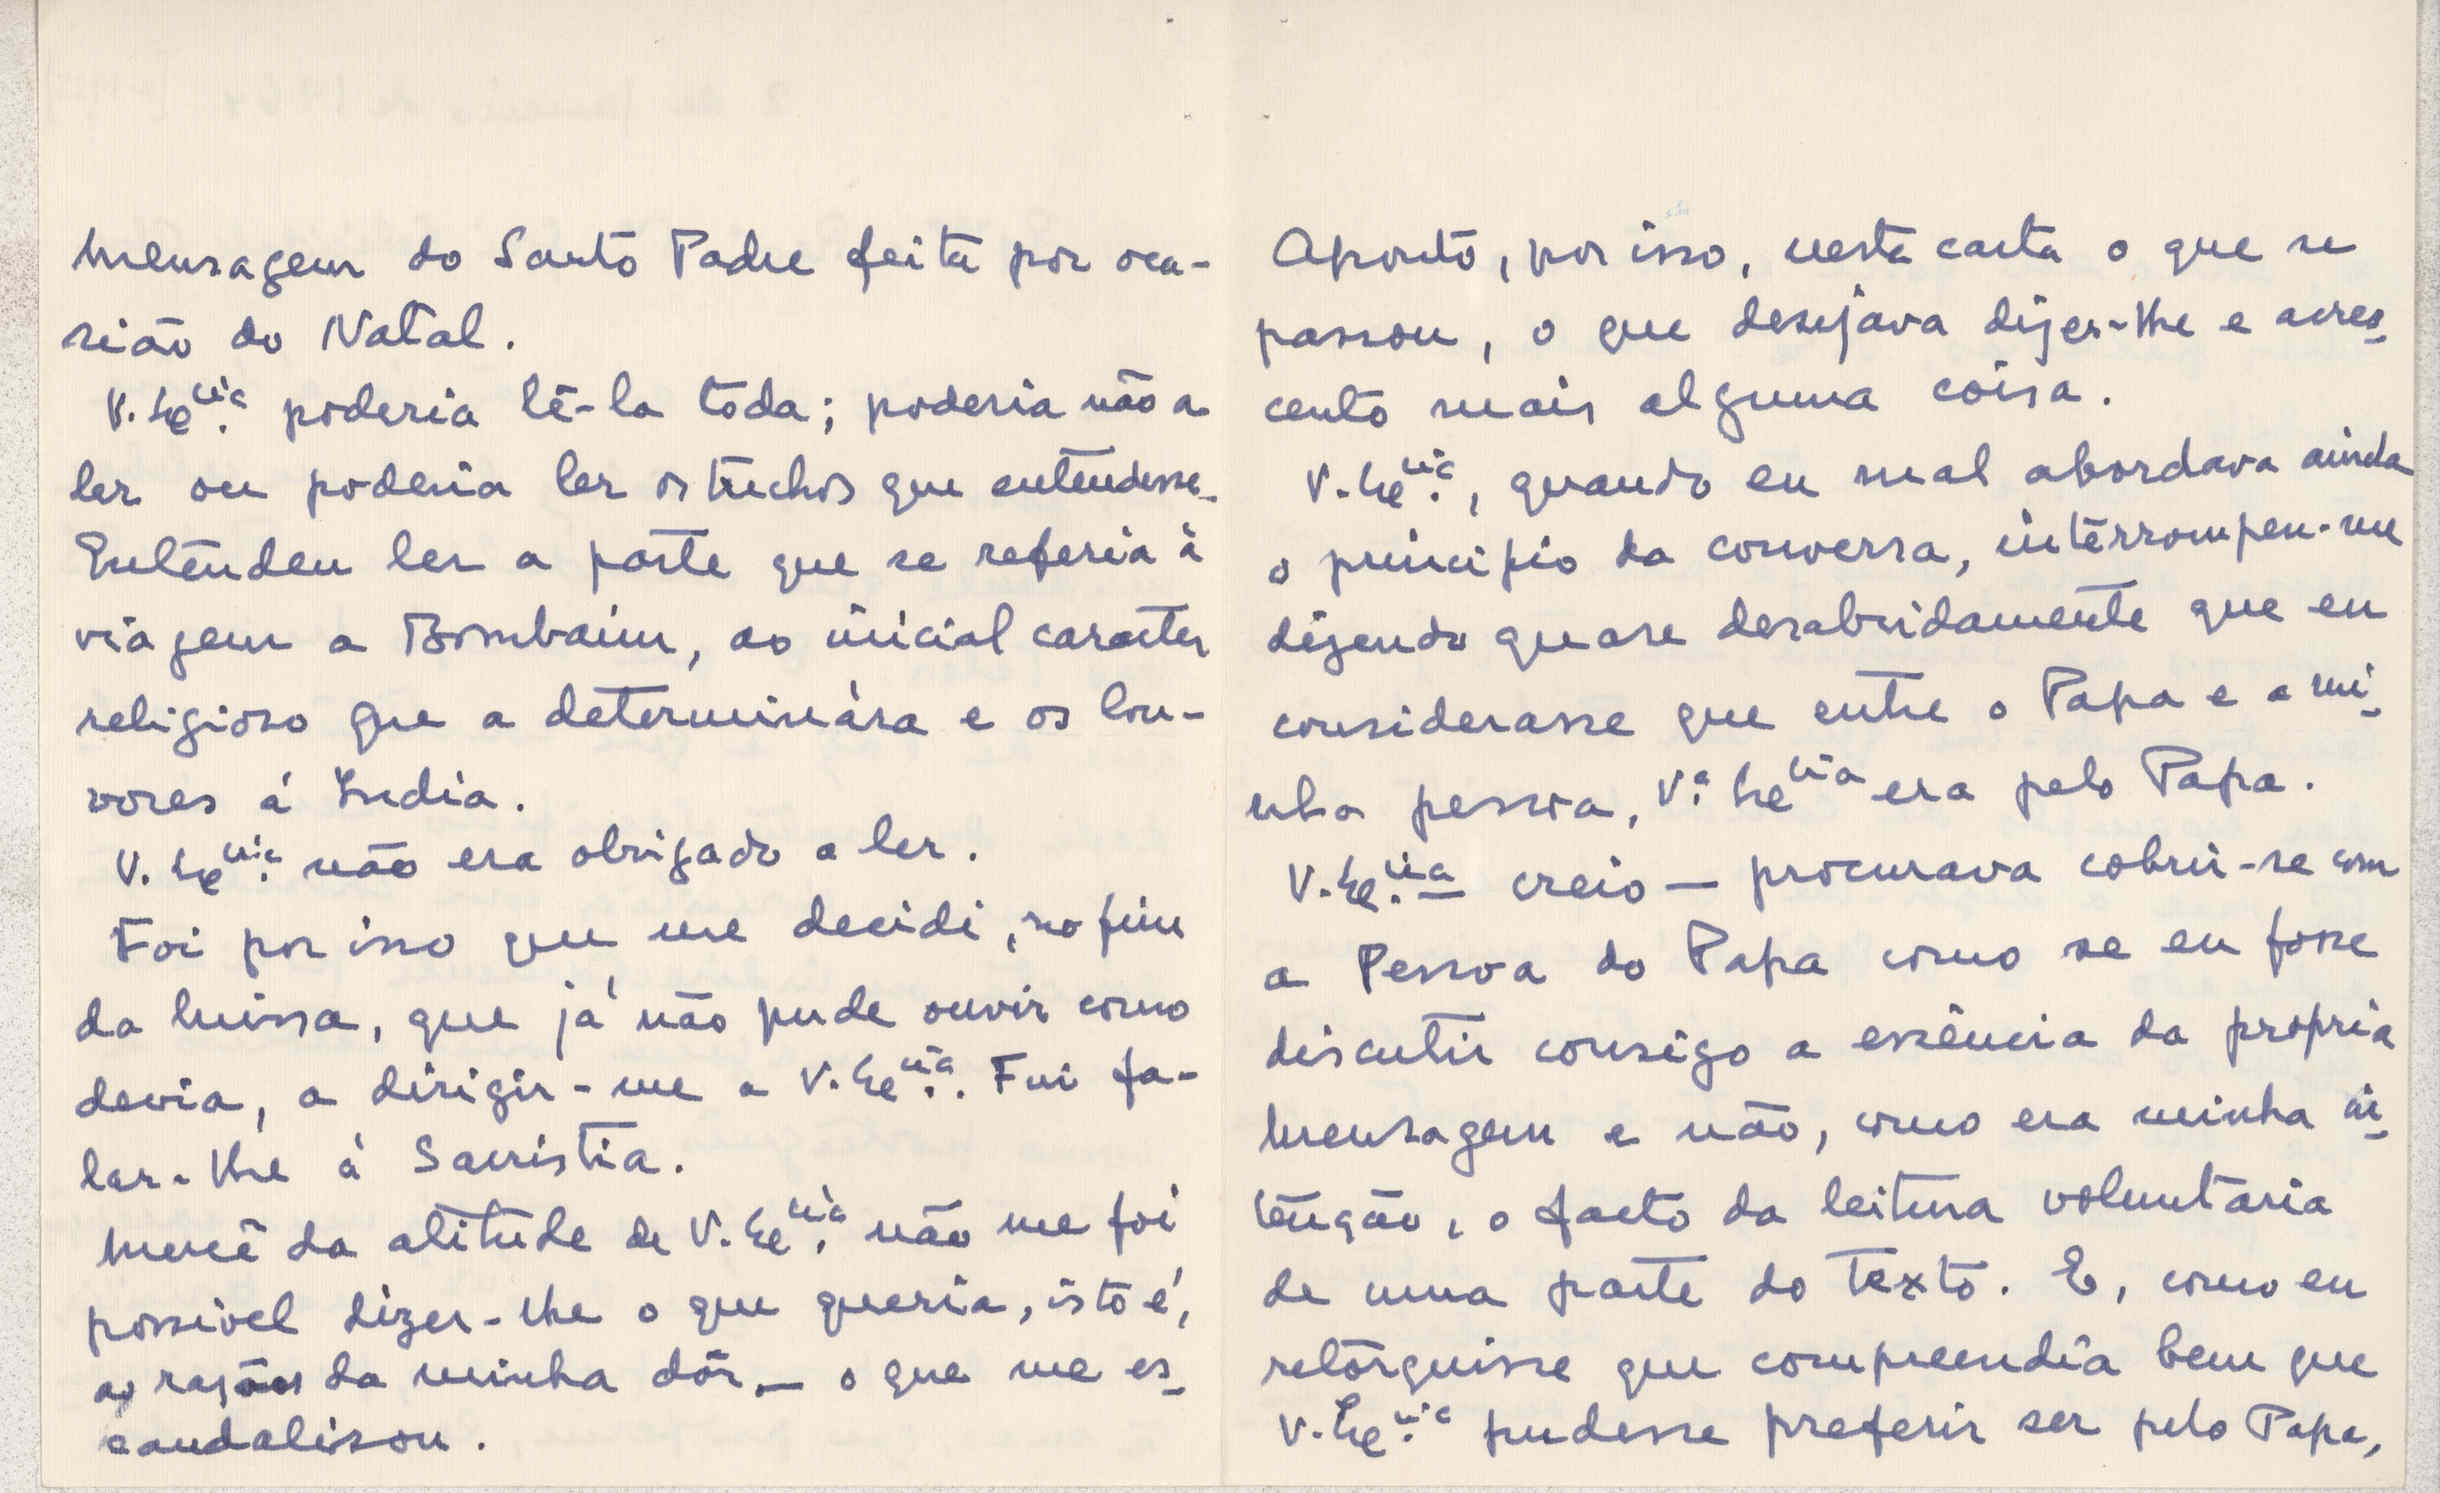 mensagem do Santo Padre feita por oca-
sião do Natal.
V. Ex.cia poderia lê-la tôda; poderia não a
ler ou poderia ler os trechos que entendesse.
Entendeu ler a parte que se referia à
viagem a Bombaim, ao inicial caracter
religioso que a determinára e os lou-
vores á India.
V. Ex.cia não era obrigado a ler.
Foi por isso que me decidi, no fim
da missa, que já não pude ouvir como
devia, a dirigir-me a V. Ex.cia. Fui fa-
lar-lhe á Sacristia.
Mercê da atitude de V. Ex.cia não me foi
possivel dizer-lhe o que queria, isto é,
as razões da minha dôr — o que me es-
candalisou.
Aponto, por isso, nesta carta o que se
passou, o que desejava dizer-lhe e acres-
cento mais alguma coisa.
V. Ex.cia, quando eu mal abordava ainda
o principio da conversa, interrompeu-me
dizendo quase desabridamente que eu
considerasse que entre o Papa e a mi-
nha pessoa, V.ª Excia era pelo Papa.
V. Ex.cia — creio — procurava cobrir-se com
a Pessoa do Papa como se eu fosse
discutir consigo a essência da propria
mensagem e não, como era minha in-
tenção, o facto da leitura voluntaria
de uma parte do texto. E, como eu
retorquisse que compreendia bem que
V. Ex.cia pudesse preferir ser pelo Papa,